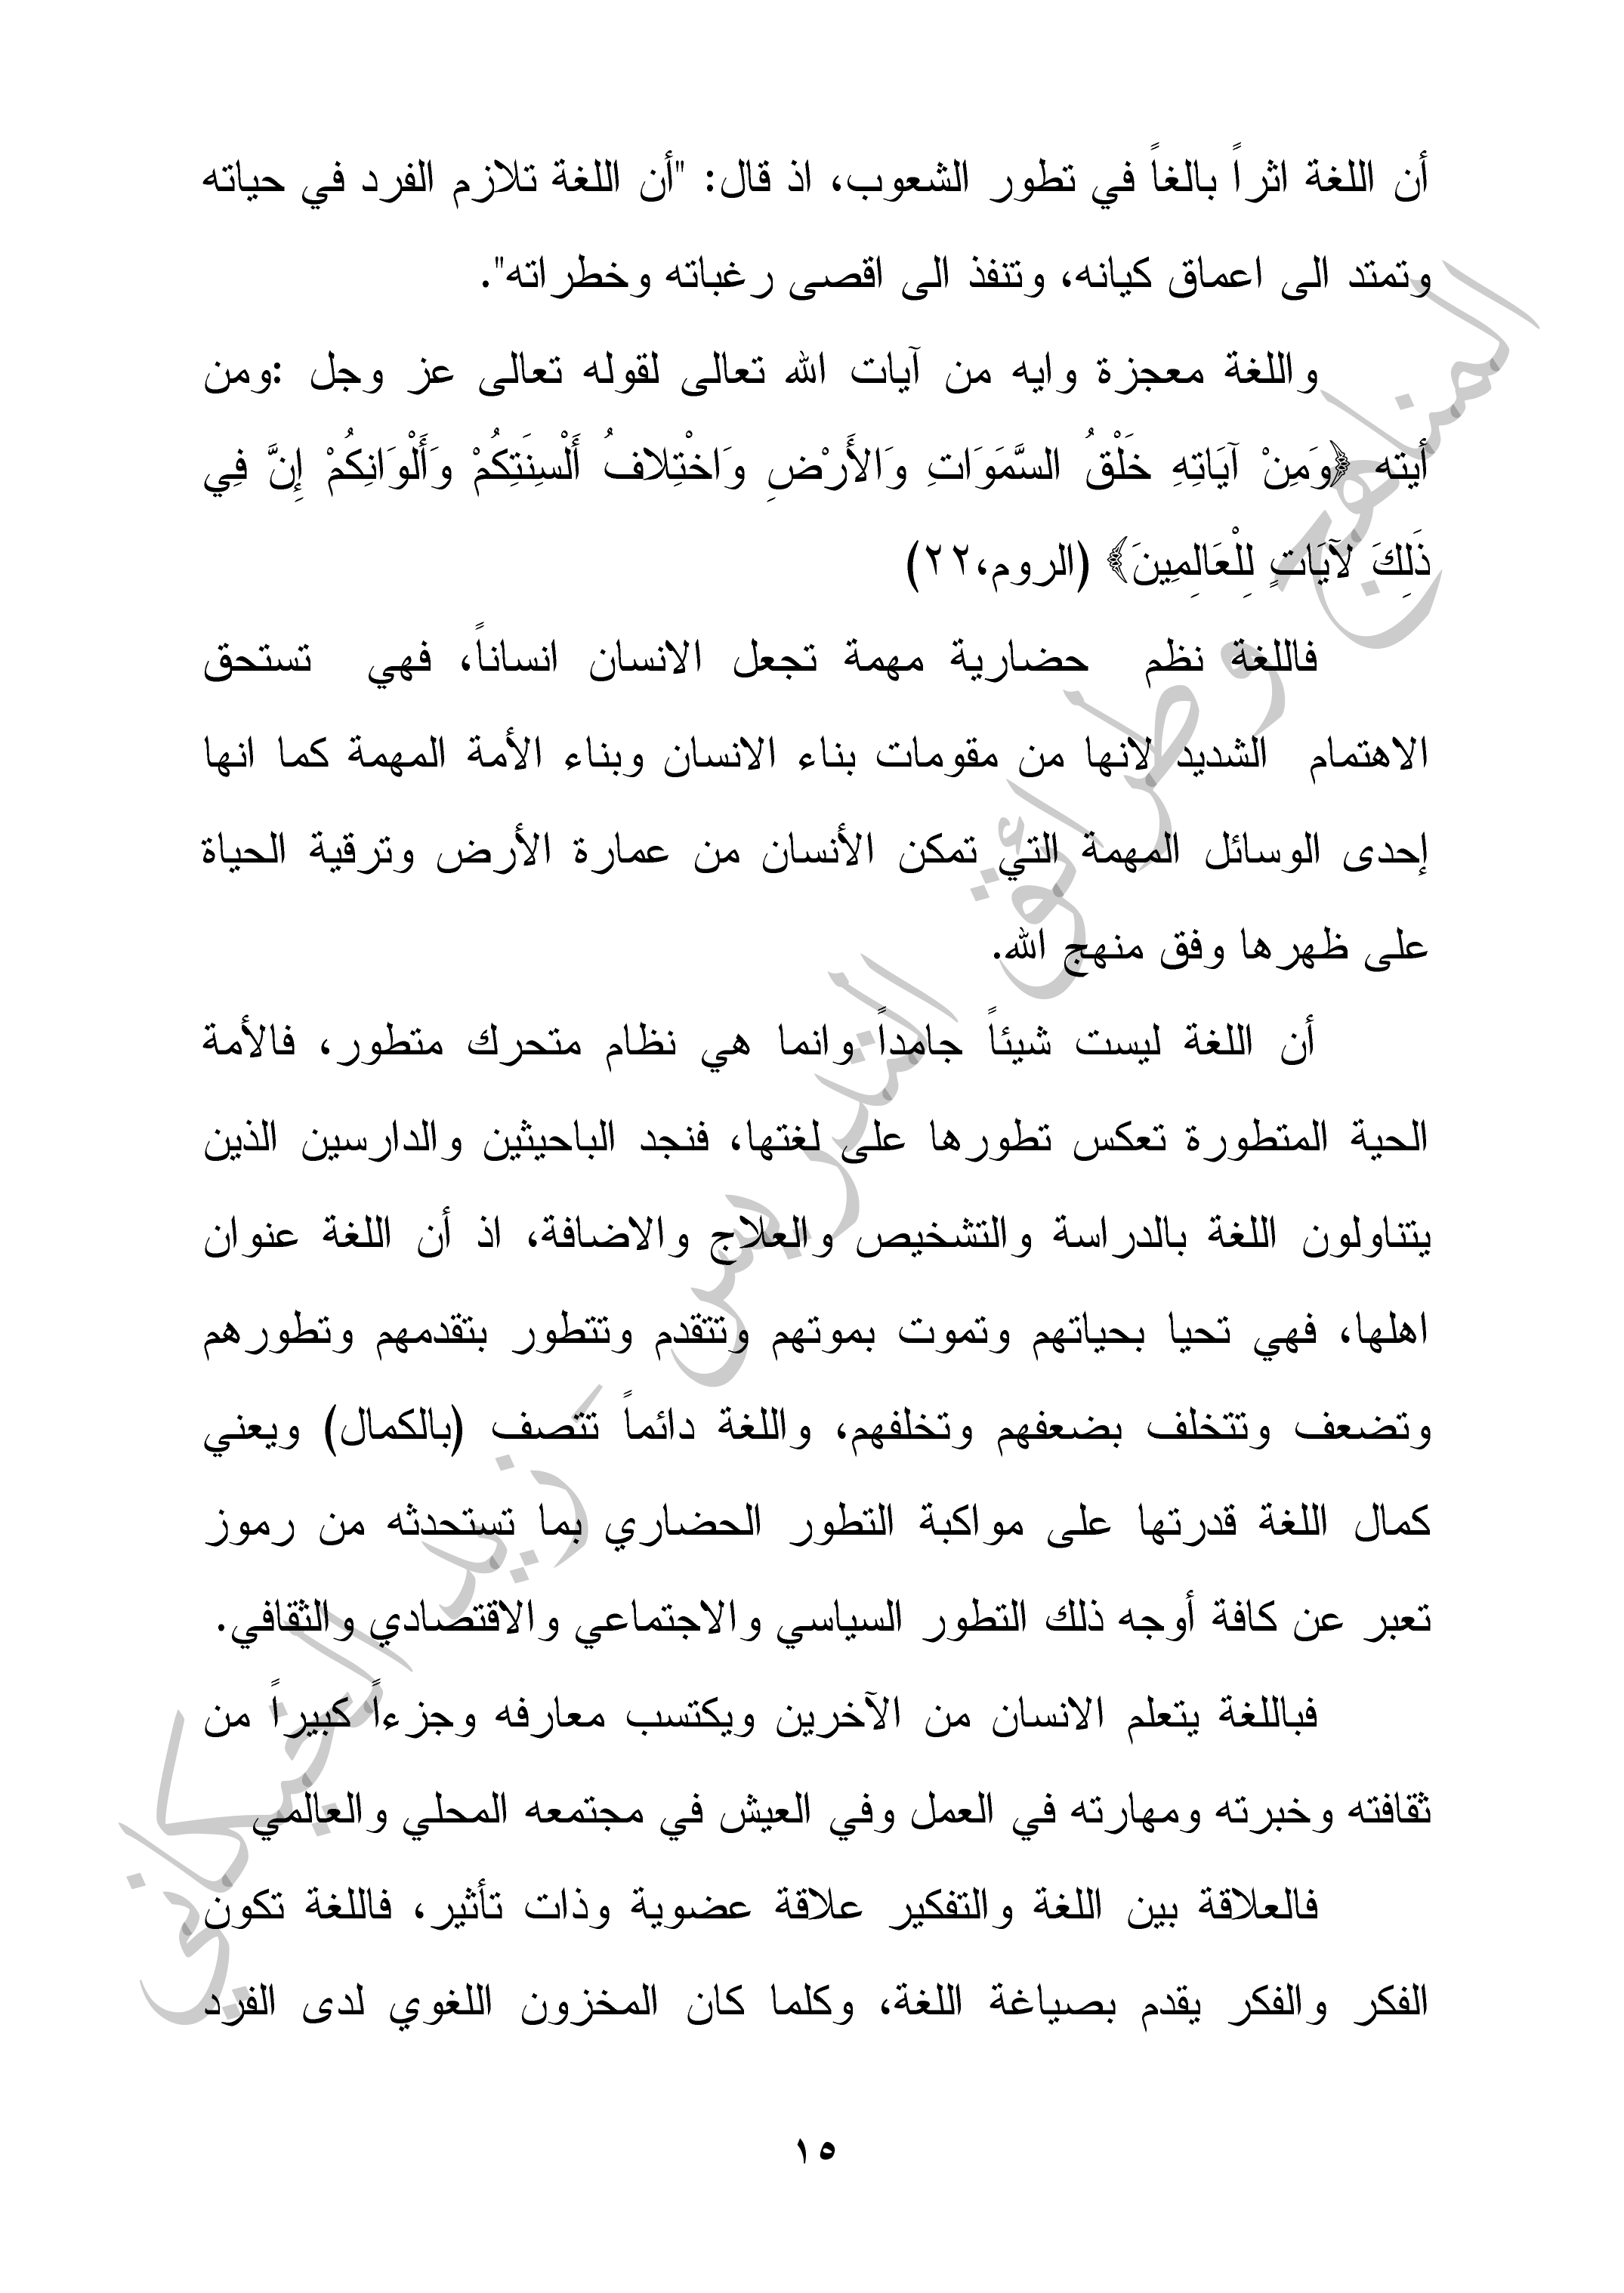 أن اللغة اثراً بالغاً في تطور الشعوب، اذ قال: "أن اللغة تلازم الفرد في حياته
وتمتد الى اعماق كيانه، وتنفذ الى اقصى رغباته وخطراته".
واللغة معجزة وايه من آيات الله تعالى لقوله تعالى عز وجل :ومن
أيته ﴿وَمِنْ آيَاتِهِ خَلْقُ السَّمَوَاتِ وَالأَرْضِ وَاخْتِلافُ أَلْسِنَتِكُمْ وَأَلْوَانِكُمْ إِنَّ فِي
ذَلِكَ لآيَاتٍ لِلْعَالِمِينَ﴾ (الروم،٢٢)
فاللغة نظم حضارية مهمة تجعل الانسان انساناً، فهي تستحق
الاهتمام الشديد لانها من مقومات بناء الانسان وبناء الأمة المهمة كما انها
إحدى الوسائل المهمة التي تمكن الأنسان من عمارة الأرض وترقية الحياة
على ظهرها وفق منهج الله.
أن اللغة ليست شيئاً جامداً وانما هي نظام متحرك متطور، فالأمة
الحية المتطورة تعكس تطورها على لغتها، فنجد الباحيثين والدارسين الذين
يتناولون اللغة بالدراسة والتشخيص والعلاج والاضافة، اذ أن اللغة عنوان
اهلها، فهي تحيا بحياتهم وتموت بموتهم وتتقدم وتتطور بتقدمهم وتطورهم
وتضعف وتتخلف بضعفهم وتخلفهم، واللغة دائماً تتصف (بالكمال) ويعني
كمال اللغة قدرتها على مواكبة التطور الحضاري بما تستحدثه من رموز
تعبر عن كافة أوجه ذلك التطور السياسي والاجتماعي والاقتصادي والثقافي.
فباللغة يتعلم الانسان من الآخرين ويكتسب معارفه وجزءاً كبيراً من
ثقافته وخبرته ومهارته في العمل وفي العيش في مجتمعه المحلي والعالمي
فالعلاقة بين اللغة والتفكير علاقة عضوية وذات تأثير، فاللغة تكون
الفكر والفكر يقدم بصياغة اللغة، وكلما كان المخزون اللغوي لدى الفرد
١٥
المناهج وطرائق التدريس _ زيد الخيكاني